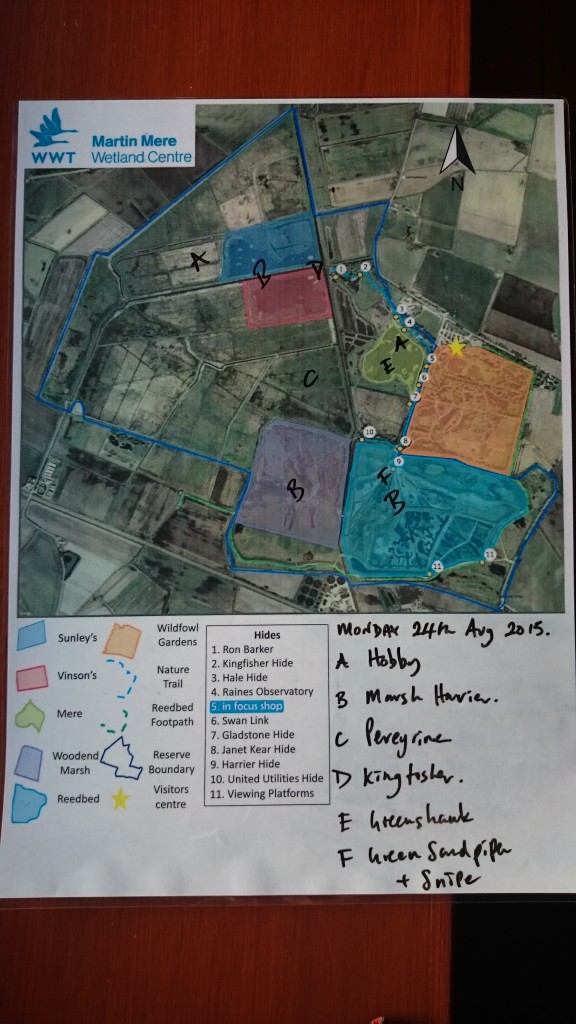 WWT
Martin Mere
Wetland Centre
N
A
B
D
1
2
3
4
A
E
5
6
7
C
10
8
9
F
B
B
11
11
Sunley's
Wildfowl
Gardens
Vinson's
Nature
Trail
Mere
Reedbed
Footpath
Woodend
Marsh
Reserve
Boundary
Reedbed
Visitors
centre
Hides
1. Ron Barker
2. Kingfisher Hide
3. Hale Hide
4. Raines Observatory
5. in focus shop
6. Swan Link
7. Gladstone Hide
8. Janet Kear Hide
9. Harrier Hide
10. United Utilities Hide
11. Viewing Platforms
MONDAY 24th Aug 2015.
A Hobby
B Marsh Harrier.
C Peregrine
D Kingfisher.
E Greenshank
F Green Sandpiper
+ Snipe